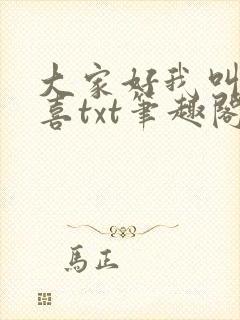 大家好我叫
喜txt笔趣阁
馬正